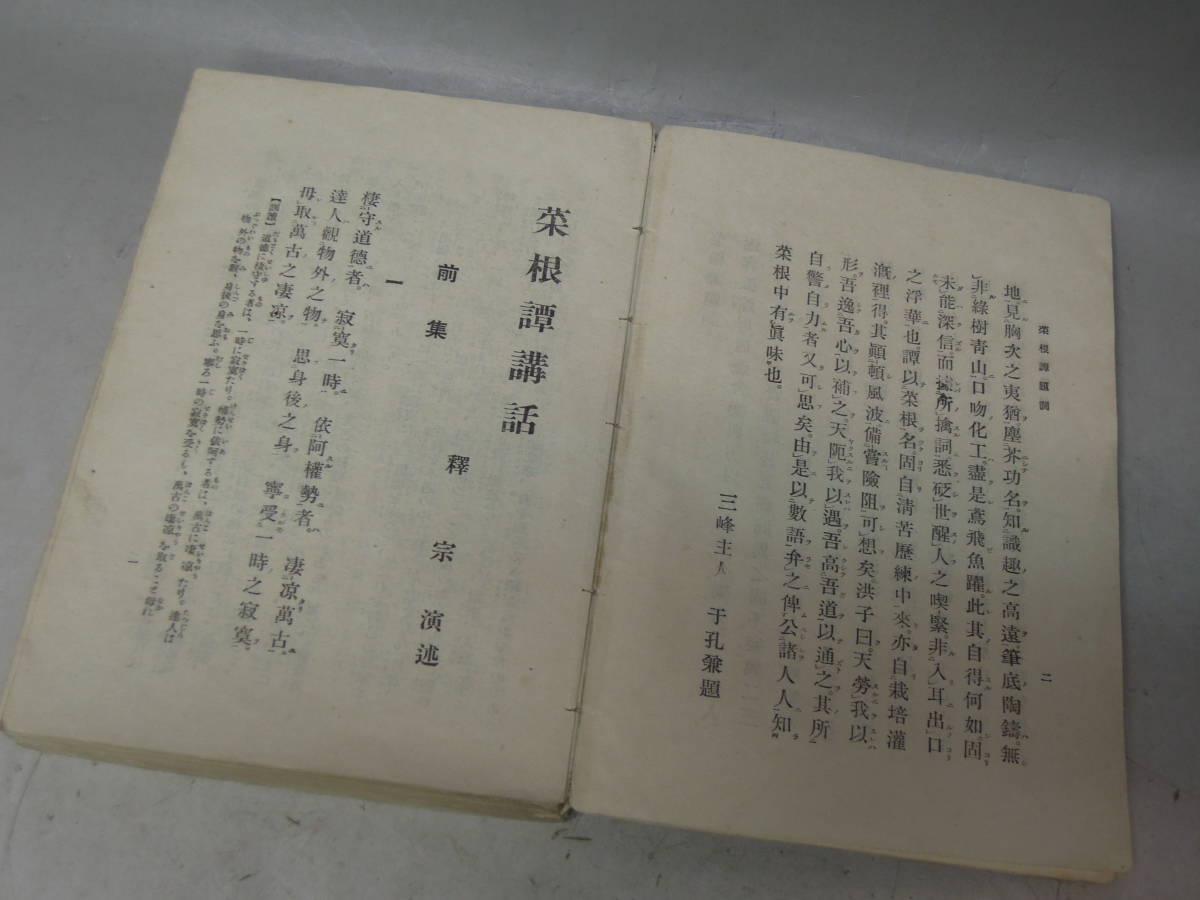 菜根譚題詞
二
地。見胸次之夷猶。塵芥功名。知識趣之高遠。筆底陶鑄。無
非綠樹靑山。口吻化工。盡是鳶飛魚躍。此其自得何如。固
未能深信。而據所擒詞。悉砭世醒人之喫緊。非入耳出口
之浮華也。譚以菜根名。固自淸苦歷練中來。亦自栽培灌
漑裡得。其顚頓風波。備嘗險阻。可想矣。洪子曰。天勞我以
形。吾逸吾心以補之。天阨我以遇。吾高吾道以通之。其所
自警自力者。又可思矣。由是以數語弁之。俾公諸人人知
菜根中有眞味也。
三峰主人 于孔兼題
菜根譚講話
前集 釋宗演述
一
棲守道德者。寂寞一時。依阿權勢者。凄凉萬古。
達人觀物外之物。思身後之身。寧受一時之寂寞。
毋取萬古之凄凉。
【訓讀】道德に棲守する者は、一時に寂寞たり。權勢に依阿する者は、萬古に凄凉たり。達人は
物外の物を觀、身後の身を思ふ。寧ろ一時の寂寞を受るも、萬古の凄凉を取ること毋に
一